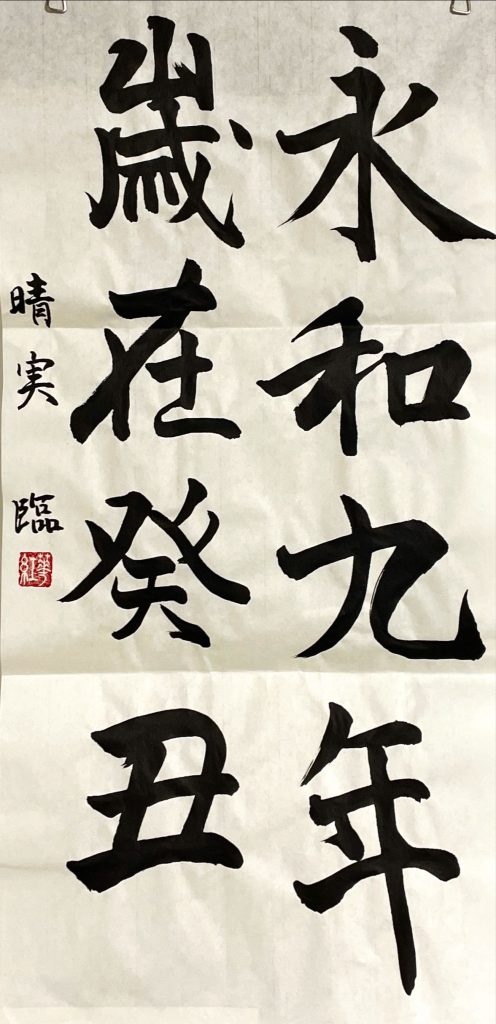 永和九年
歳在癸丑
晴実 臨